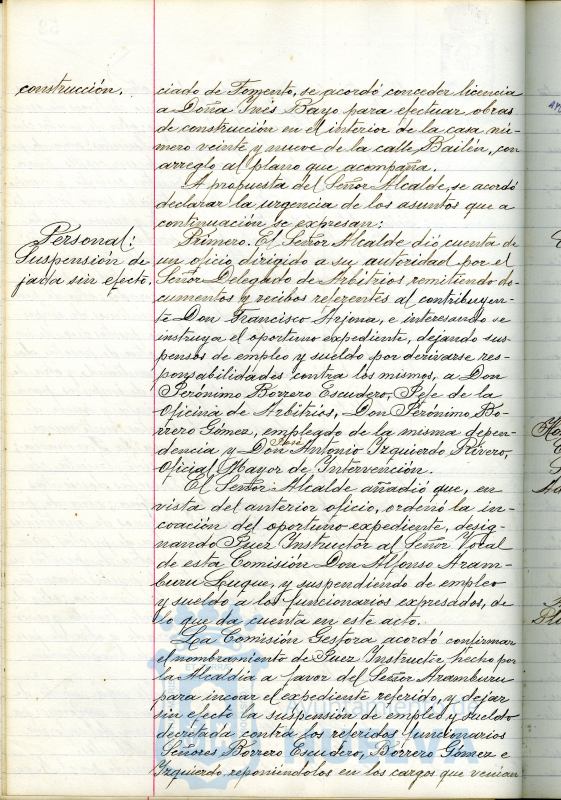 construcción.
ciado de Fomento, se acordó conceder licencia
a Doña Inés Bayo para efectuar obras
de construcción en el interior de la casa nú-
mero veinte y nueve de la calle Bailén, con
arreglo al plano que acompaña.
A propuesta del Señor Alcalde, se acordó
declarar la urgencia de los asuntos que a
continuación se expresan:
Personal:
Suspensión de-
jada sin efecto.
Primero. El Señor Alcalde dió cuenta de
un oficio dirigido a su autoridad por el
Señor Delegado de Arbitrios remitiendo do-
cumentos y recibos referentes al contribuyen-
te Don Francisco Arjona, e interesando se
instruya el oportuno expediente, dejando sus-
pensos de empleo y sueldo por derivarse res-
ponsabilidades contra los mismos, a Don
Jerónimo Borrero Escudero, Jefe de la
Oficina de Arbitrios, Don Jerónimo Bo-
rrero Gómez, empleado de la misma depen-
dencia y Don José Antonio Izquierdo Rivero,
Oficial Mayor de Intervención.
El Señor Alcalde añadió que, en
vista del anterior oficio, ordenó la in-
coación del oportuno expediente, desig-
nando Juez Instructor al Señor Vocal
de esta Comisión Don Alfonso Aram-
buru Luque, y suspendiendo de empleo
y sueldo a los funcionarios expresados, de
lo que da cuenta en este acto.
La Comisión Gestora acordó confirmar
el nombramiento de Juez Instructor hecho por
la Alcaldía a favor del Señor Aramburu
para incoar el expediente referido, y dejar
sin efecto la suspensión de empleo y sueldo
decretada contra los referidos funcionarios
Señores Borrero Escudero, Borrero Gómez e
Izquierdo, reponiéndolos en los cargos que venían
Ayuntamiento de